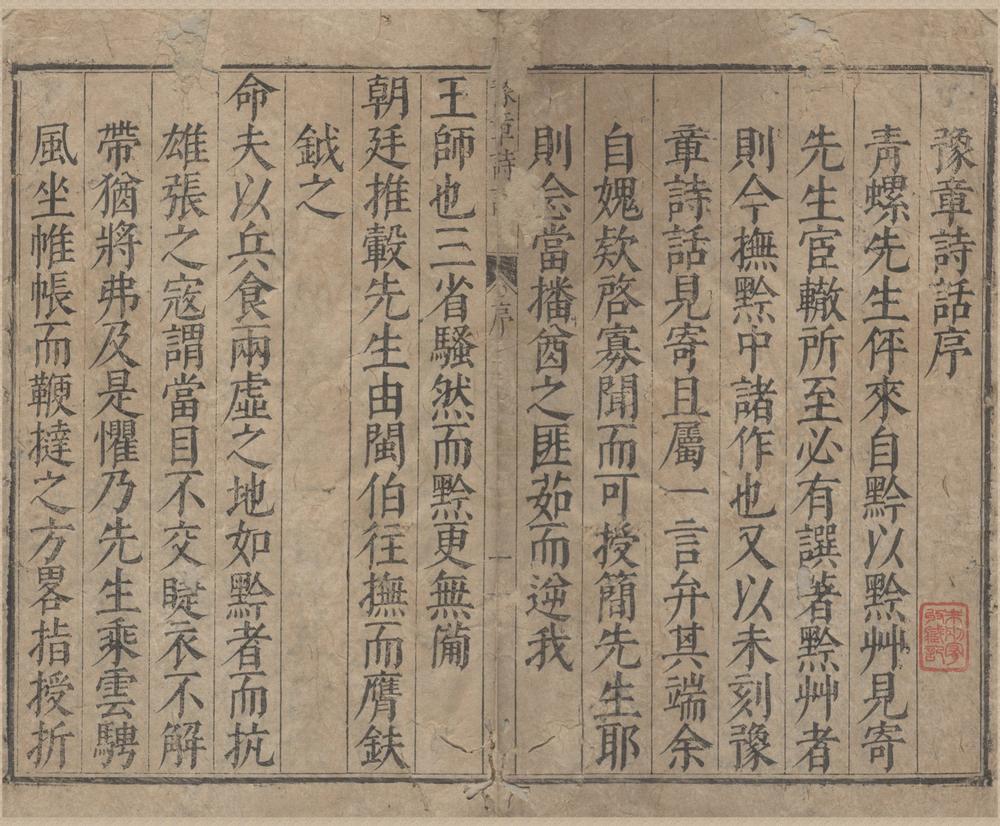 豫章詩話序
青螺先生伻來自黔以黔艸見寄
先生宦轍所至必有譔著黔艸者
則今撫黔中諸作也又以未刻豫
章詩話見寄且屬一言弁其端余
自媿欵啓寡聞而可授簡先生耶
則念當播酋之匪茹而逆我
豫章詩
序
一
王師也三省騷然而黔更無備
朝廷推轂先生由閩伯往撫而膺鈇
鉞之
命夫以兵食兩虛之地如黔者而抗
雄張之寇謂當目不交睫衣不解
帶猶將弗及是懼乃先生乘雲騁
風坐帷帳而鞭撻之方畧指授折